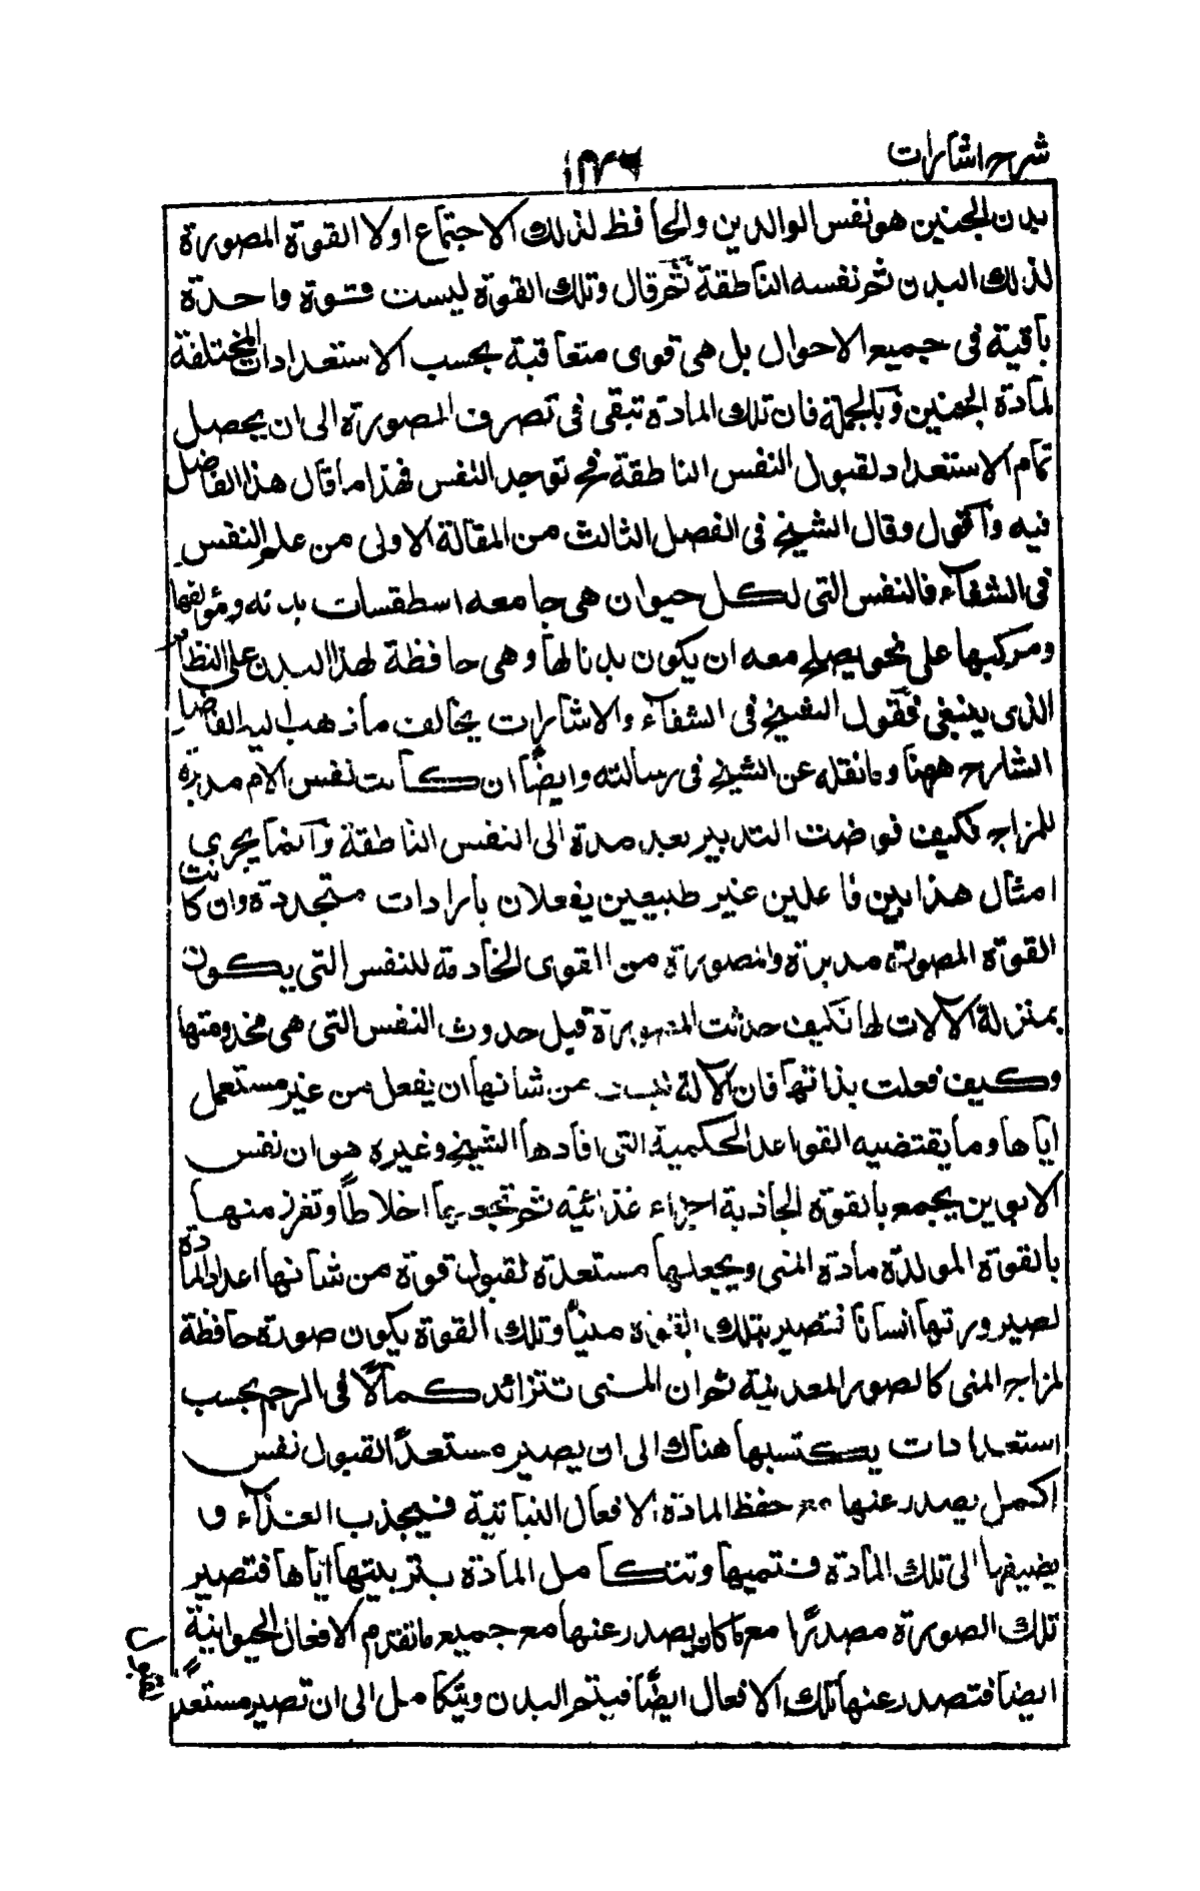 شرح اشارات
بدن الجنين هو نفس الوالدين والحافظ لذلك الاجتماع اولا القوة المصورة
لذلك البدن ثم نفسه الناطقة ثم قال وتلك القوة ليست قوة واحدة
باقية فى جميع الاحوال بل هى قوى متعاقبة بحسب الاستعدادات المختلفة
لمادة الجنين وبالجملة فان تلك المادة تبقى فى تصرف المصورة الى ان يحصل
تمام الاستعداد لقبول النفس الناطقة فح توجد النفس فهذا ما قال هذا الفاضل
فيه واقول وقال الشيخ فى الفصل الثالث من المقالة الاولى من علم النفس
فى الشفآء فالنفس التى لكل حيوان هى جامعه اسطقسات بدنه ومؤلفها
ومركبها على نحو يصلح معه ان يكون بدنا لها وهى حافظة لهذا البدن على النظام
الذى ينبغى فقول الشيخ فى الشفآء والاشارات يخالف ما ذهب اليه الفاضل
الشارح ههنا وما نقله عن الشيخ فى رسالته وايضًا ان كانت نفس الام مدبرة
للمزاج فكيف فوضت التدبير بعد مدة الى النفس الناطقة وانما يجرى
امثال هذا بين فاعلين غير طبيعين يفعلان بارادات متجددة وان كانت
القوة المصورة مدبرة والمصورة من القوى الخادمة للنفس التى يكون
بمنزلة الآلات لها فكيف حدثت المصورة قبل حدوث النفس التى هى مخدومتها
وكيف فعلت بذاتها فان الآلة ليست من شانها ان يفعل من غير مستعمل
اياها وما يقتضيه القواعد الحكمية التى افادها الشيخ وغيره هو ان نفس
الابوين يجمع بالقوة الجاذبة اجزاء غذائية ثم تجعلها اخلاطًا وتفرز منها
بالقوة المولدة مادة المنى ويجعلها مستعدة لقبول قوة من شانها اعداد المادة
لصيرورتها انسانا فتصير بتلك القوة منيًا وتلك القوة يكون صورة حافظة
لمزاج المنى كالصور المعدنية ثم ان المنى تتزائد كمالًا فى الرحم بحسب
استعدادات يكتسبها هناك الى ان يصير مستعدًا لقبول نفس
اكمل يصدر عنها مع حفظ المادة الافعال النباتية فيجذب الغذآء و
يضيفها الى تلك المادة فتنميها وتتكامل المادة بتربيتها اياها فتصير
تلك الصورة مصدرًا مع ما كان يصدر عنها مع جميع ما تقدم الافعال الحيوانية
ايضا فتصدر عنها تلك الافعال ايضًا فيتم البدن ويتكامل الى ان تصير مستعدًا